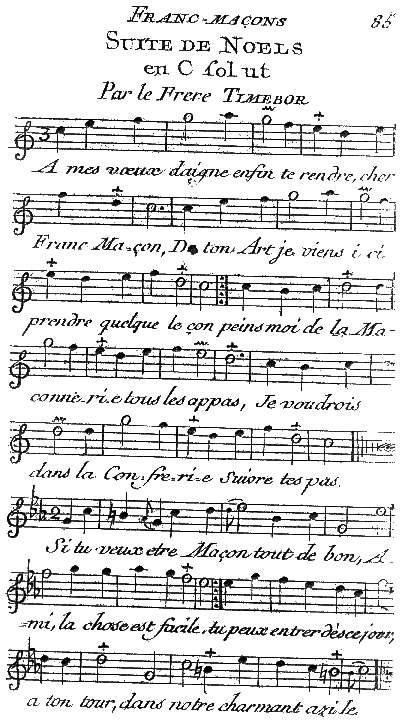 FRANC-MAÇONS 85
SUITE DE NOELS
en C sol ut
Par le Frere TIMEBOR
A mes vœux daigne enfin te rendre, cher
Franc Ma-çon, De ton Art je viens i ci
prendre quelque le çon peins moi de la Ma-
conne-ri-e tous les appas, Je voudrois
dans la Con-fre-ri-e Suivre tes pas.
Si tu veux etre Maçon tout de bon, A-
=mi, la chose est facile, tu peux entrer dès ce jour,
a ton tour, dans notre charmant azi le